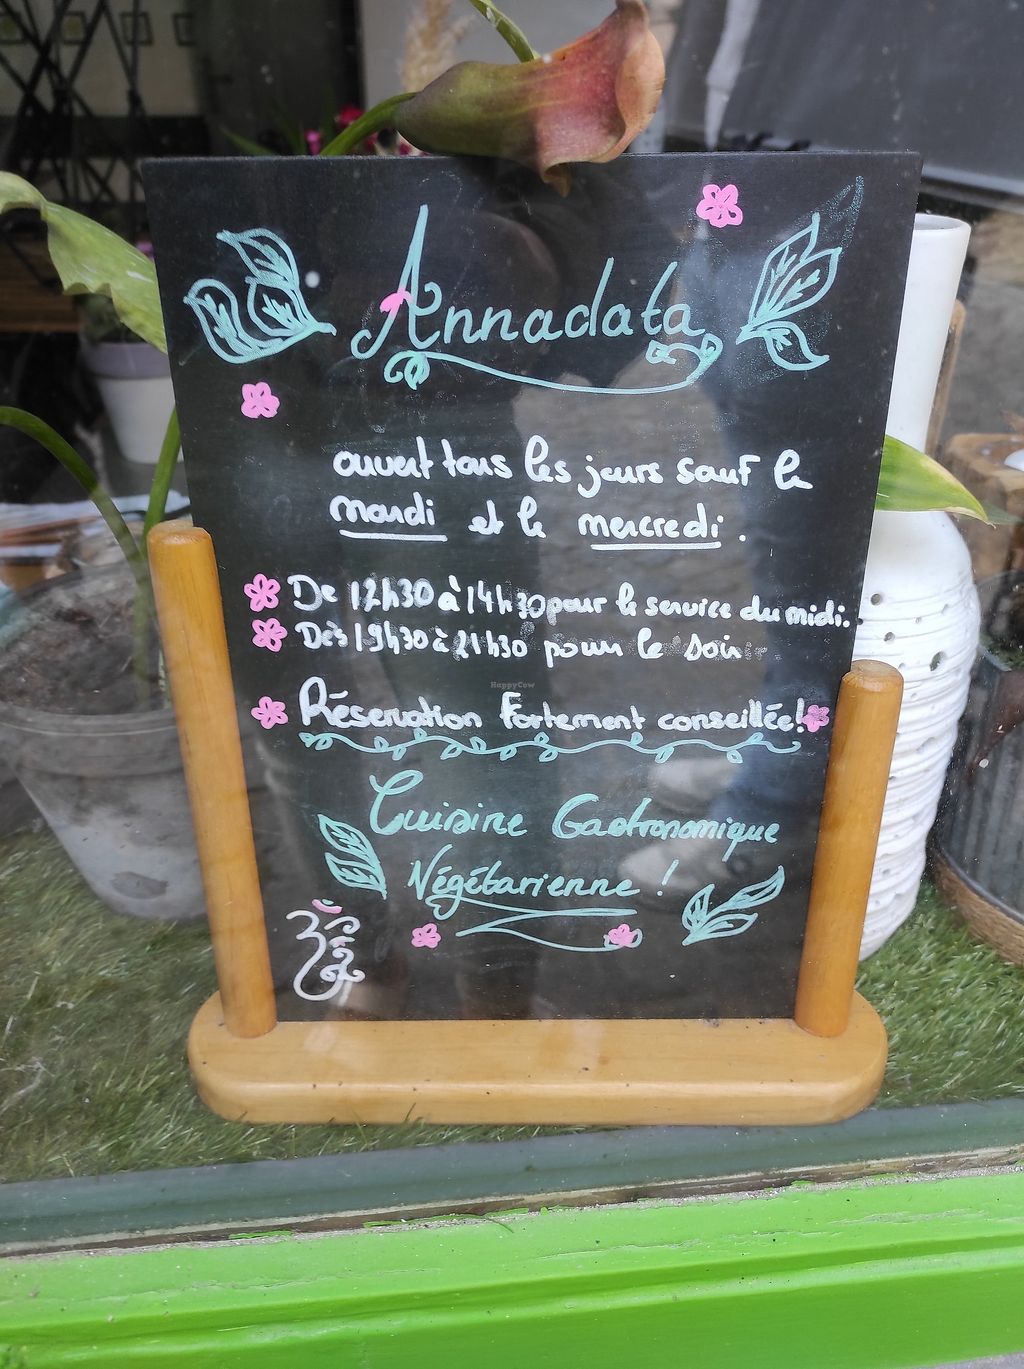 Annadata
ouvert tous les jours sauf le
mardi et le mercredi.
De 12h30 à 14h30 pour le service du midi.
Dès 19h30 à 21h30 pour le soir
HappyCow
Réservation Fortement conseillée!
Cuisine Gastronomique
Végétarienne !